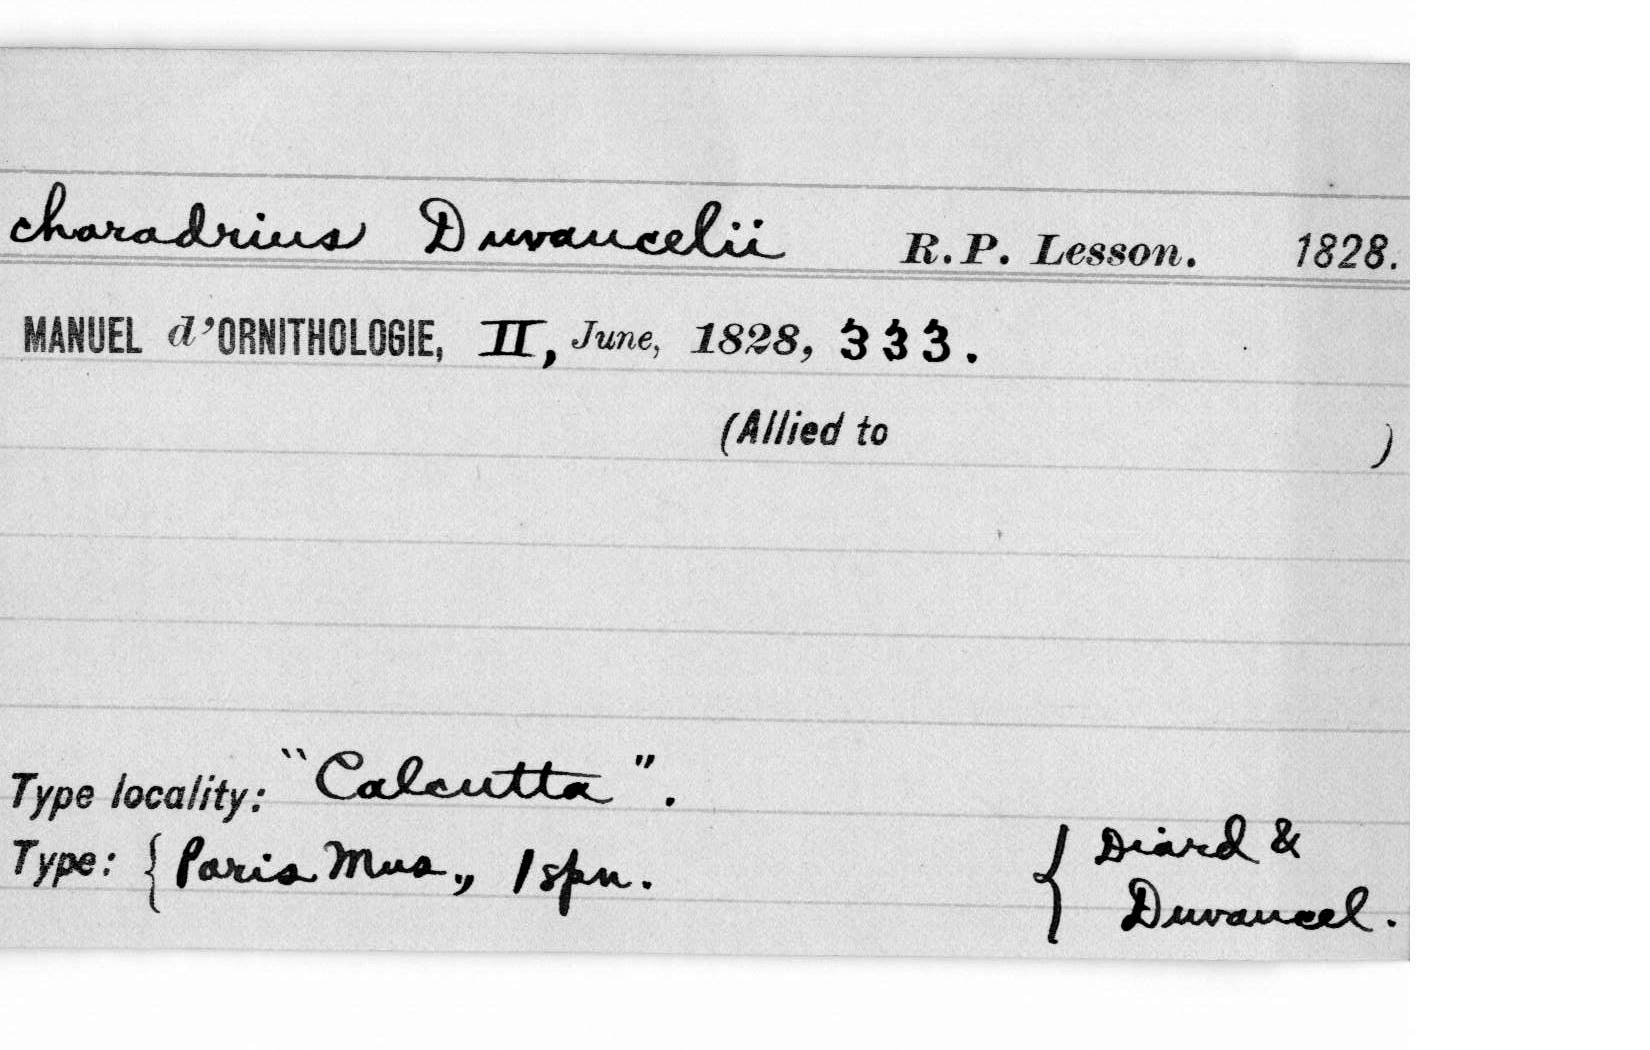 charadrius Duvaucelii R.P. Lesson. 1828.
MANUEL d'ORNITHOLOGIE, II, June, 1828, 333.
(Allied to )
Type locality: "Calcutta".
Type: { Paris Mus., 1 spn. { Diard &
Duvaucel.